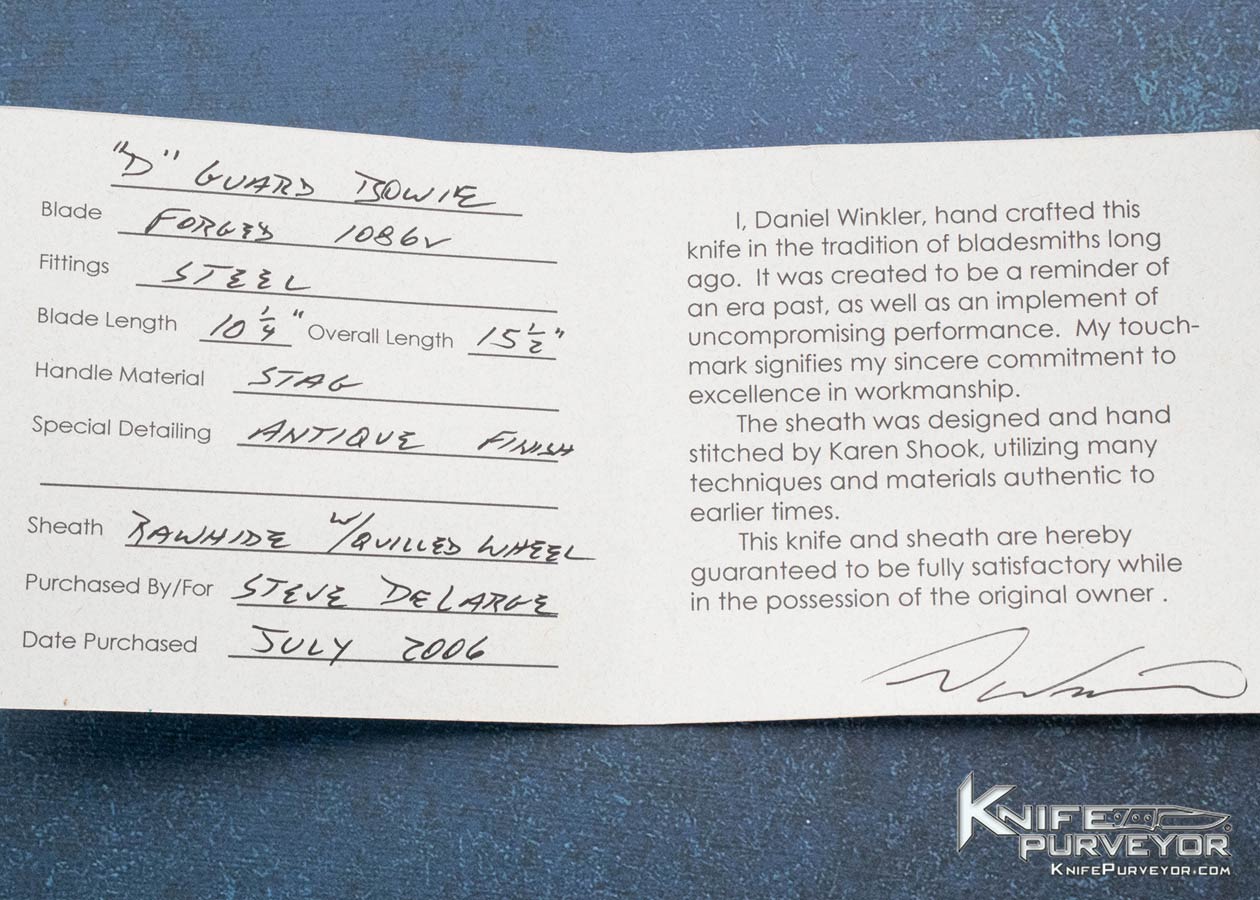 "D" GUARD BOWIE
Blade FORGED 1086V
Fittings STEEL
Blade Length 10 1/4" Overall Length 15 1/2"
Handle Material STAG
Special Detailing ANTIQUE FINISH
Sheath RAWHIDE W/QUILLED WHEEL
Purchased By/For STEVE DELARGE
Date Purchased JULY 2006
I, Daniel Winkler, hand crafted this
knife in the tradition of bladesmiths long
ago. It was created to be a reminder of
an era past, as well as an implement of
uncompromising performance. My touch-
mark signifies my sincere commitment to
excellence in workmanship.
The sheath was designed and hand
stitched by Karen Shook, utilizing many
techniques and materials authentic to
earlier times.
This knife and sheath are hereby
guaranteed to be fully satisfactory while
in the possession of the original owner .
KNIFE
PURVEYOR
KNIFEPURVEYOR.COM